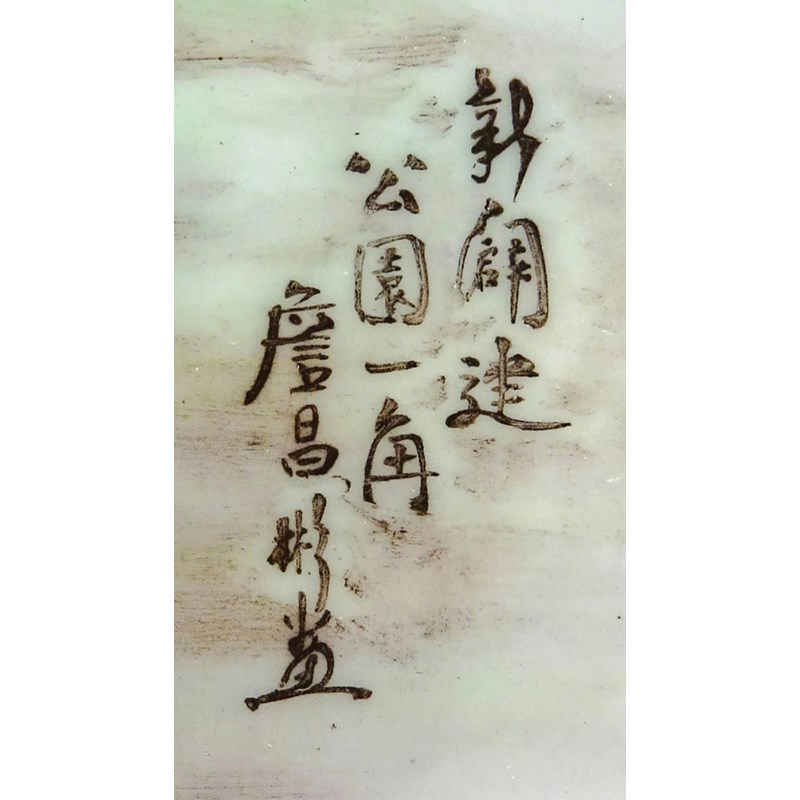 新闢建
公園一角
詹昌彬畫